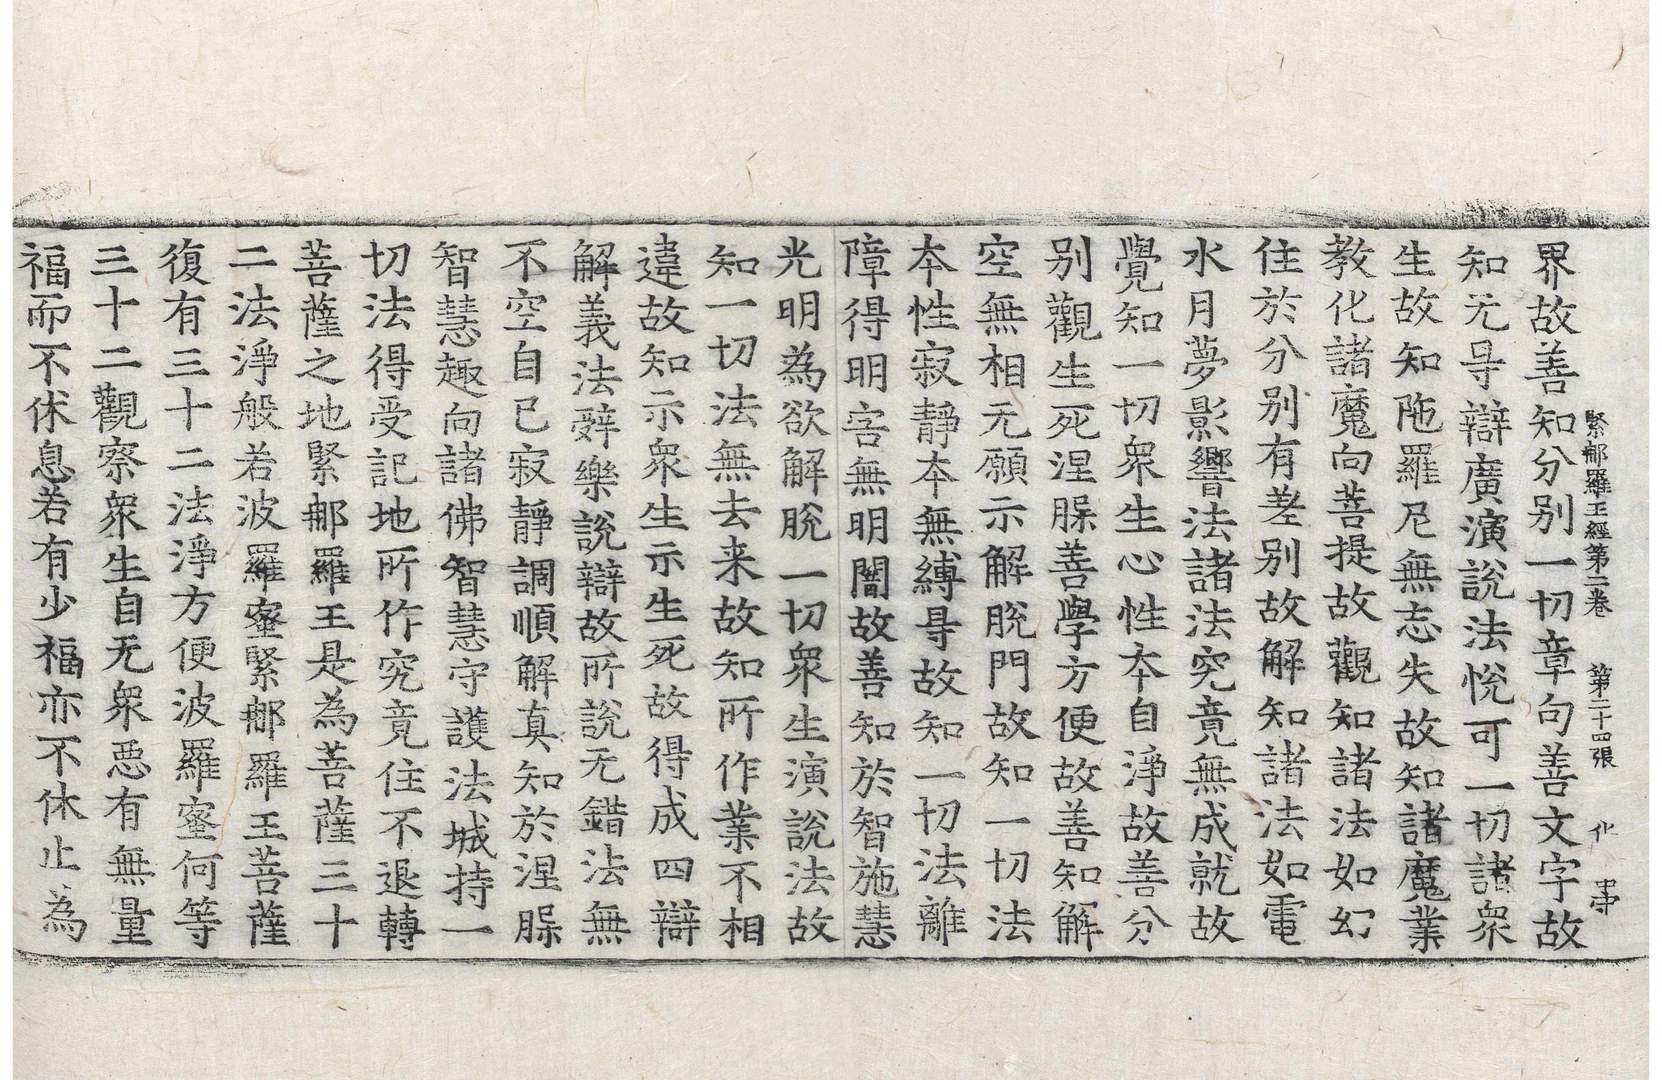 緊𨙻羅王經第二卷 第二十四張 化 
界故善知分別一切章句善文字故
知无㝵辯廣演說法悅可一切諸衆
生故知陁羅尼無忘失故知諸魔業
教化諸魔向菩提故觀知諸法如幻
住於分别有差别故解知諸法如電
水月夢影響法諸法究竟無成就故
覺知一切衆生心性夲自淨故善分
别觀生死涅𦙁善學方便故善知解
空無相无願示解脫門故知一切法
夲性寂靜夲無縛㝵故知一切法離
障得明害無明闇故善知於智施慧
光明為欲解脫一切衆生演說法故
知一切法無去来故知所作業不相
違故知示衆生示生死故得成四辯
解義法辝樂說辯故所說无錯法無
不空自已寂靜調順解真知於涅𦙁
智慧趣向諸佛智慧守護法城持一
切法得受記地所作究竟住不退轉
菩薩之地緊𨙻羅王是為菩薩三十
二法淨般若波羅蜜緊𨙻羅王菩薩
復有三十二法淨方便波羅蜜何等
三十二觀察衆生自无衆惡有無量
福而不休息若有少福亦不休止為